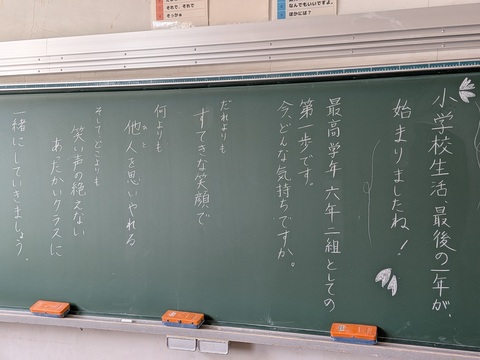 それで、それで
そっかぁ
なんでもいいですよ。
ほかには?
小学校生活、最後の一年が、
始まりましたね!
最高学年 六年二組としての
第一歩です。
今、どんな気持ちですか。
だれよりも
すてきな笑顔で
何よりも
他人を思いやれる
ひと
そしてどこよりも
笑い声の絶えない
あったかいクラスに
一緒にしていきましょう。